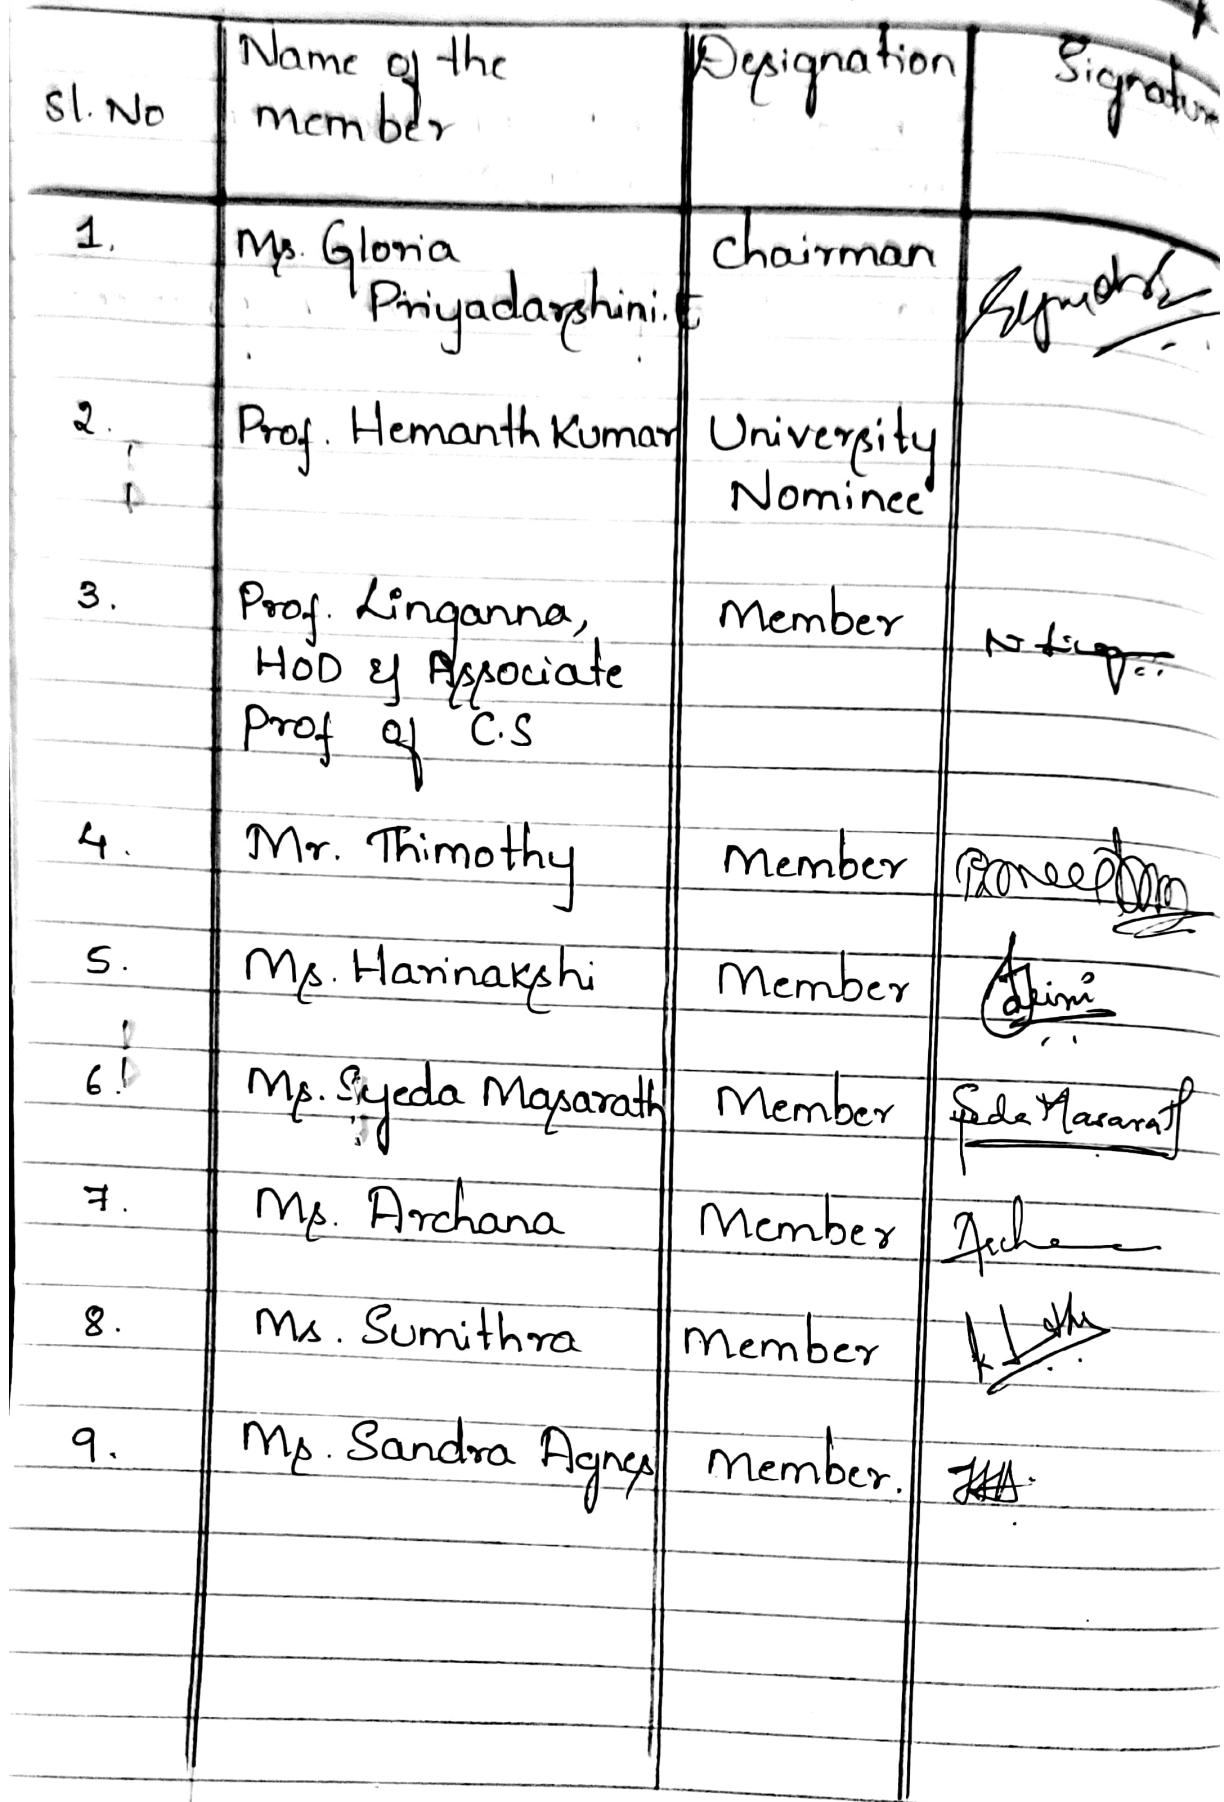 Sl. No
Name of the
member
Designation
Signature
1.
Ms. Gloria
Priyadarshini. E
Chairman
2.
Prof. Hemanth Kumar
University
Nominee
3.
Prof. Linganna,
HOD & Associate
Prof of C.S
Member
4.
Mr. Thimothy
Member
5.
Ms. Harinakshi
Member
6.
Ms. Syeda Masarath
Member
Syeda Masarath
7.
Ms. Archana
Member
8.
Ms. Sumithra
Member
9.
Ms. Sandra Agnes
Member.